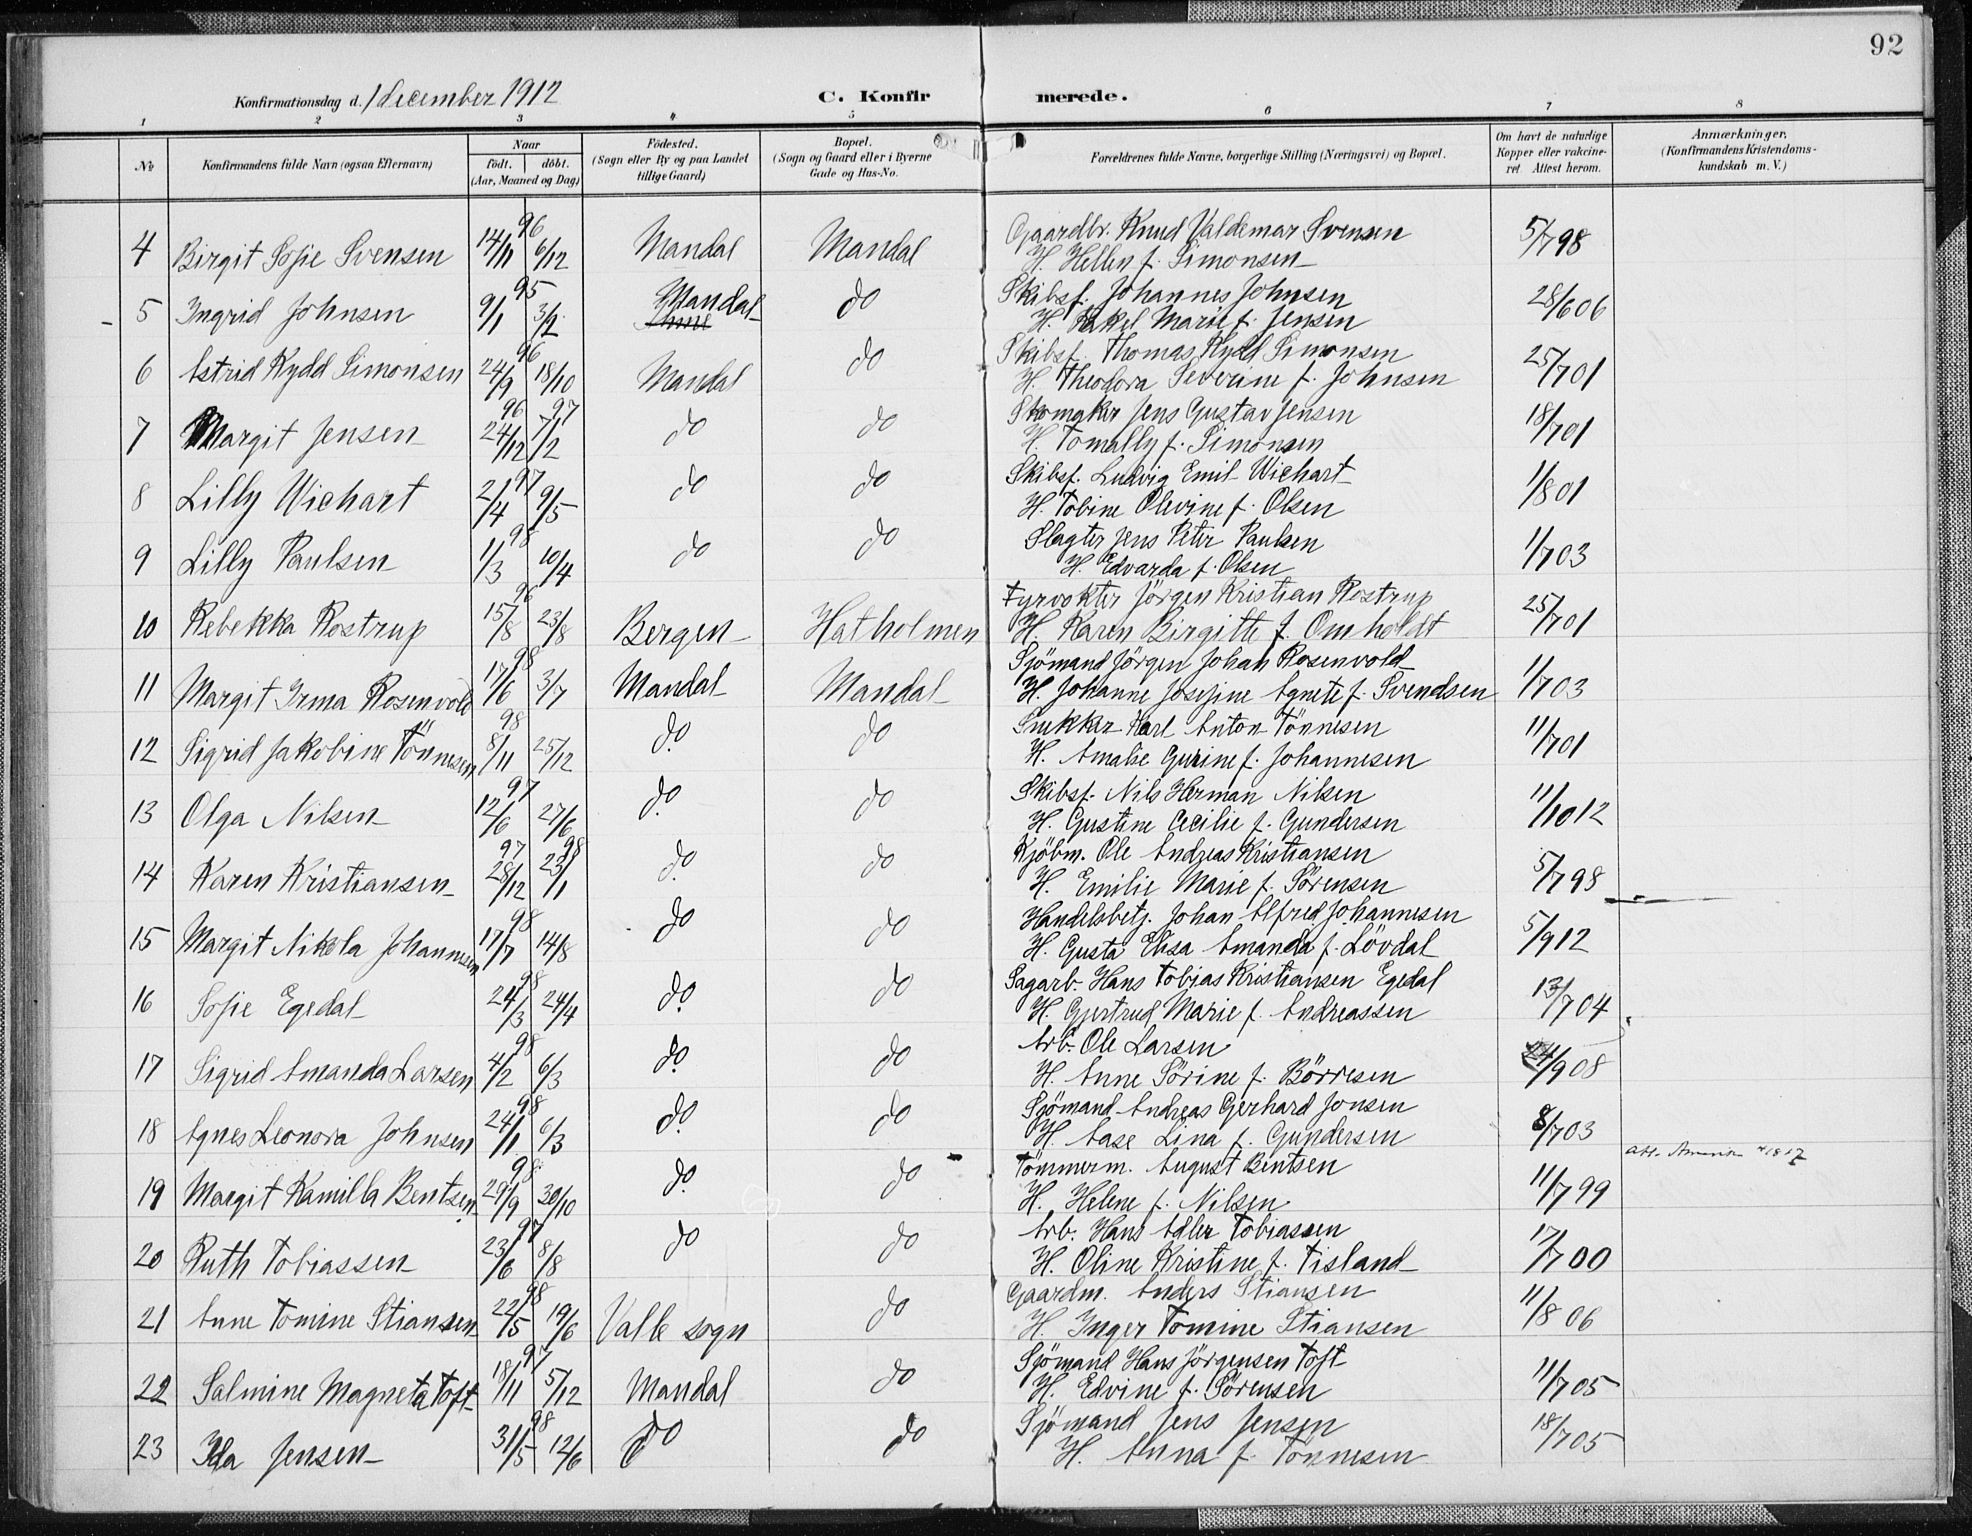 92
Konfirmationsdag d. 1 december 1912 C. Konfirmerede.
1 2 3 4 5 6 7 8
No Konfirmandens fulde Navn (ogsaa Efternavn) Naar født, døbt. (Aar, Maaned og Dag) Födested. (Sogn eller By og paa Landet tillige Gaard) Bopæl. (Sogn og Gaard eller i Byerne Gade og Hus-No. Forældrenes fulde Navne, borgerlige Stilling (Næringsvei) og Bopæl. Om havt de naturlige Kopper eller vakcineret. Attest herom. Anmærkninger. (Konfirmandens Kristendomskundskab m. V.)
4 Birgit Sofie Svensen 14/11 96 6/12 Mandal Mandal Gaardbr. Knud Valdemar Svensen 5/7 98
H. Hellen f. Simonsen
5 Ingrid Johnsen 9/1 95 3/2 Mandal do Skibsf. Johannes Johnsen 28/6 06
H. Rakel Marie f. Jensen
6 Astrid Kydd Simonsen 24/9 96 18/10 Mandal do Skibsf. Thomas Kydd Simonsen 25/7 01
H. Theodora Severine f. Johnsen
7 Margit Jensen 24/12 96 7/2 97 do do Skomaker Jens Gustav Jensen 18/7 01
H. Tomally f. Simonsen
8 Lilly Wichart 2/4 97 9/5 do do Skibsf. Ludvig Emil Wichart 1/8 01
H. Tobine Olevine f. Olsen
9 Lilly Paulsen 1/3 98 10/4 do do Slagter Jens Peter Paulsen 1/7 03
H. Edvarda f. Olsen
10 Rebekka Rostrup 15/8 96 23/8 Bergen Hatholmen Fyrvokter Jörgen Kristian Rostrup 25/7 01
H. Karen Birgitte f. Omholdt
11 Margit Irma Rosenvold 17/6 98 3/7 Mandal Mandal Sjömand Jörgen Johan Rosenvold 1/7 03
H. Johanne Josefine Agnete f. Svendsen
12 Sigrid Jakobine Tönnesen 8/11 98 25/12 do. do Snekker Karl Anton Tönnesen 11/7 01
H. Amalie Gurine f. Johannesen
13 Olga Nilsen 12/6 97 27/6 do. do Skibsf. Nils Herman Nilsen 11/10 12
H. Gustine Cecilie f. Gundersen
14 Karen Kristiansen 28/12 97 23/1 98 do. do Kjöbm. Ole Andreas Kristiansen 5/7 98
H. Emilie Marie f. Sörensen
15 Margit Nikola Johannesen 17/7 98 14/8 do do Handelsbetj. Johan Alfred Johannesen 5/9 12
H. Gusta Elisa Amanda f. Lövdal
16 Sofie Egedal 24/3 98 24/4 do. do Sagarb. Hans Tobias Kristiansen Egedal 13/7 04
H. Gjertrud Marie f. Andreassen
17 Sigrid Amanda Larsen 4/2 98 6/3 do. do Arb. Ole Larsen /9 08
H. Anne Sörine f. Börresen
18 Agnes Leonora Johnsen 24/1 98 6/3 do. do Sjömand Andreas Gerhard Jonsen 8/7 03
H. Aase Lina f. Gundersen
19 Margit Kamilla Bentsen 29/9 98 30/10 do. do Tömmerm. August Bentsen 11/7 99
H. Helene f. Nilsen
20 Ruth Tobiassen 23/6 97 8/8 do do Arb. Hans Adler Tobiassen 17/7 00
H. Oline Kristine f. Tisland
21 Anne Tomine Stiansen 22/5 98 19/6 Valle sogn do Gaardm. Anders Stiansen 11/8 06
H. Inger Tomine Stiansen
22 Salmine Magneta Toft 18/11 97 5/12 Mandal do Sjömand Hans Jörgensen Toft 11/7 05
H. Edvine f. Sörensen
23 Ida Jensen 31/5 98 12/6 do do Sjömand Jens Jensen 18/7 05
H. Anna f. Tönnesen